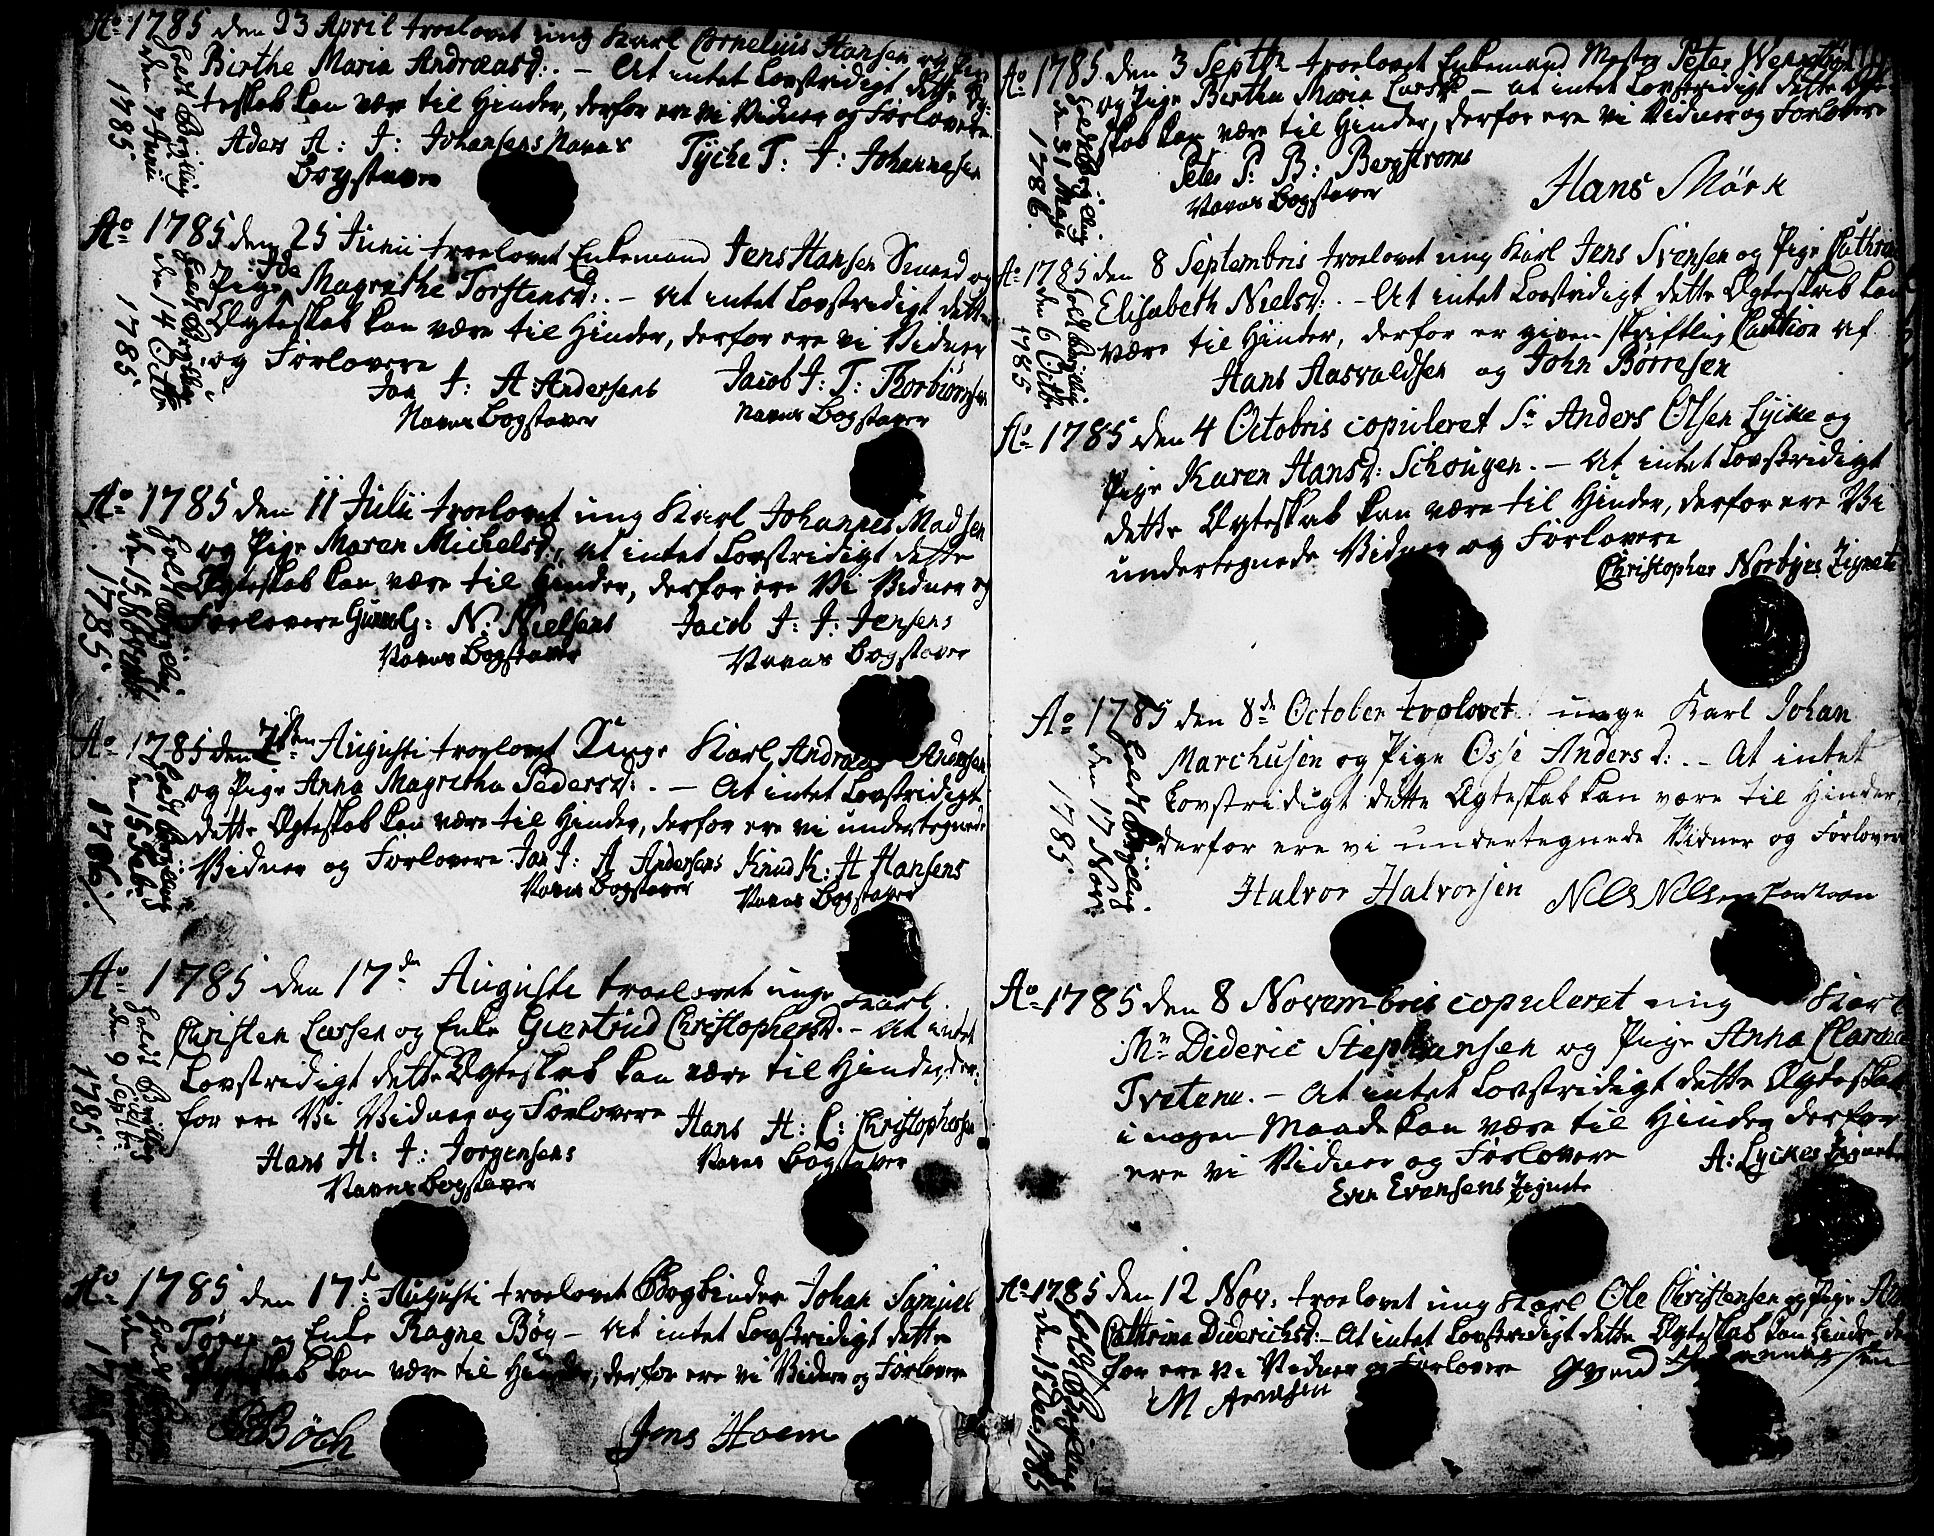 Ao 1785 den 23 April troelovet ung Karl Cornelius Hansen og Pige
Birthe Maria Andreasd: . — At intet Lovstridigt dette Eg-
teskab kan være til Hinder, derfor ere vi Vidner og Forlovere
Aders A: J: Johansens Navns
Bogstaver
Tÿche T: J: Johannesen
holdt Brÿllup
den 7 Junii
1785
Ao 1785 den 25 Junii troelovet Enkemand Jens Hansen Smed og
Pige Ida Magrethe Torstensd: . — At intet Lovstridigt dette
Ægteskab kan være til Hinder, derfor ere vi Vidner
og Forlovere
Jan J: A: Andersens
Navns Bogstaver
Jacob J: T: Thorbiörnsens
Navns Bogstaver
holdt Bryllup
den 14 Octbr
1785
Ao 1785 den 11 Julii troelovet ung Karl Johannes Madsen
og Pige Maren Michelsd:, At intet Lovstridigt dette
Ægteskab kan være til Hinder, derfor ere Vi Vidner og
Forlovere G: N: Nielsens
Navns Bogstaver
Jacob J: J: Jensens
Navns Bogstaver
holdt
den 15
1785
Ao 1785 den Augusti troelovet Unge Karl Andreas
og Pige Anna Magretha Pedersd: . — At intet Lovstridigt
dette Ægteskab kan være til Hinder, derfor ere vi undertegnede
Vidner og Forlovere Jan J: A Andersens
Navns Bogstaver
Knud K: H Hansens
Navns Bogstaver
den 15 Febr
1786
Ao 1785 den 17de Augusti troelovet unge Karl
Christen Larsen og Enke Giertrud Christophersd. — At intet
Lovstridigt dette Ægteskab kan være til Hinder, der-
for ere Vi Vidner og Forlovere
Hans H: J: Jorgensens
Navns Bogstaver
Hans H: C: Christophersen
Navns Bogstaver
holdt Bryllup
den 9 Septbr:
1785
Ao 1785 den 17d Augusti troelovet Bogbinder Johan Samuel
og Enke Ragne Bög — At intet Lovstridigt dette
Ægteskab kan være til Hinder, derfor ere vi Vidner og Forlovere
Böch
Jens Hoem
Ao 1785 den 3 Septbr troelovet Enkemand Mester Peter
og Pige Birthe Maria Larsd — At intet Lovstridigt dette Ægte-
skab kan være til Hinder, derfor ere Vi Vidner og Forlovere
Peter P: B: Bergstroms
Navns Bogstaver
Hans Mörk
holdt Bryllup
den 31 Maji
1786.
Ao 1785 den 8 Septembris troelovet ung Karl Jens Svensen og Pige Cathrine
Elisabeth Nielsd: . — At intet Lovstridigt dette Ægteskab kan
være til Hinder, derfor er given skriftlig Caution af
Hans Aasvaldsen og John Börresen
holdt Bryllup
den 6 Octbr
1785
Ao 1785 den 4 Octobris copuleret Sr Anders Olsen Lycke og
Pige Karen Hansd: Schougen. — At intet Lovstridigt
dette Ægteskab kan være til Hinder, derfor ere Vi
undertegnede Vidner og Forlovere
Christopher Norbyes Zignete
Ao 1785 den 8de October trolovet unge Karl Johan
Marchusen og Pige Osse Anders d: . — At intet
Lovstridigt dette Ægteskab kan være til Hinder,
derfor ere vi undertegnede Vidner og Forlovere
Halvor Halvorsen
Nels Nelsen
holdt Bryllup
den 17 Nov:
1785
Ao 1785 den 8 Novembris copuleret ung Karl
Mr Dideric Stephansen og Pige Anna
Tvetene. — At intet Lovstridigt dette Ægteskab
i nogen Maade kan være til Hinder derfor
ere vi Vidner og Forlovere
Even Evensens Zignete
A: Lyckes Zignete
Ao 1785 den 12 Nov: troelovet ung Karl Ole Christensen og Pige
Cathrina Diderichsd: — At intet Lovstridigt dette Ægteskab kan hindre
for ere vi Vidner og Forlovere
M Arntsen
holdt Bryllup
den 15 Dec. 1785